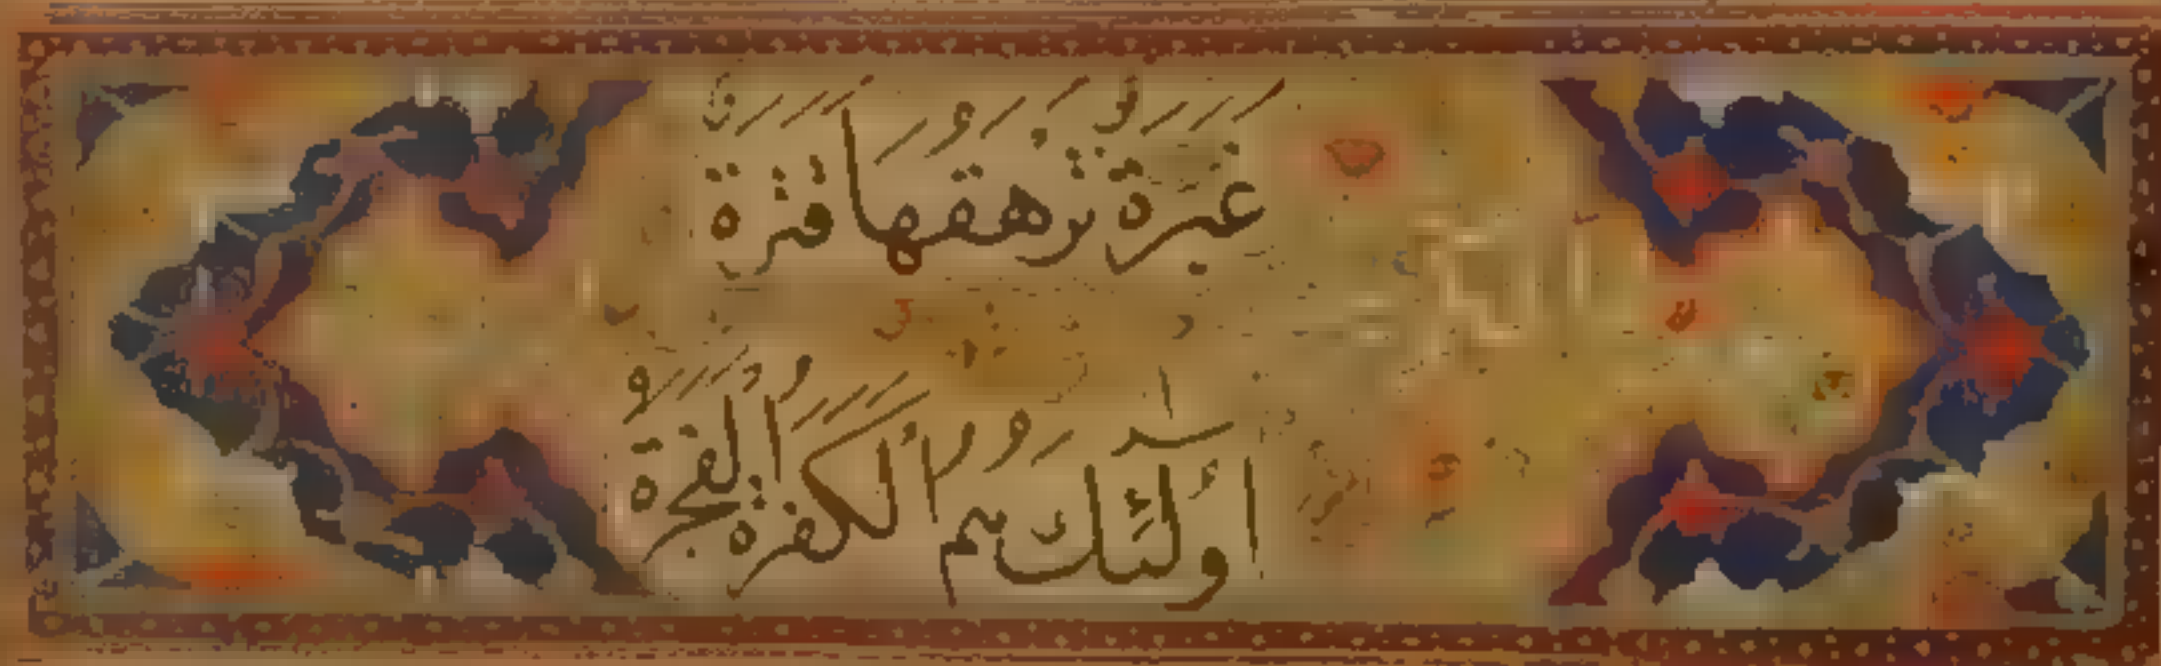 غَبَرَةٌ تَرْهَقُهَا قَتَرَةٌ
أُولَٰئِكَ هُمُ الْكَفَرَةُ الْفَجَرَةُ